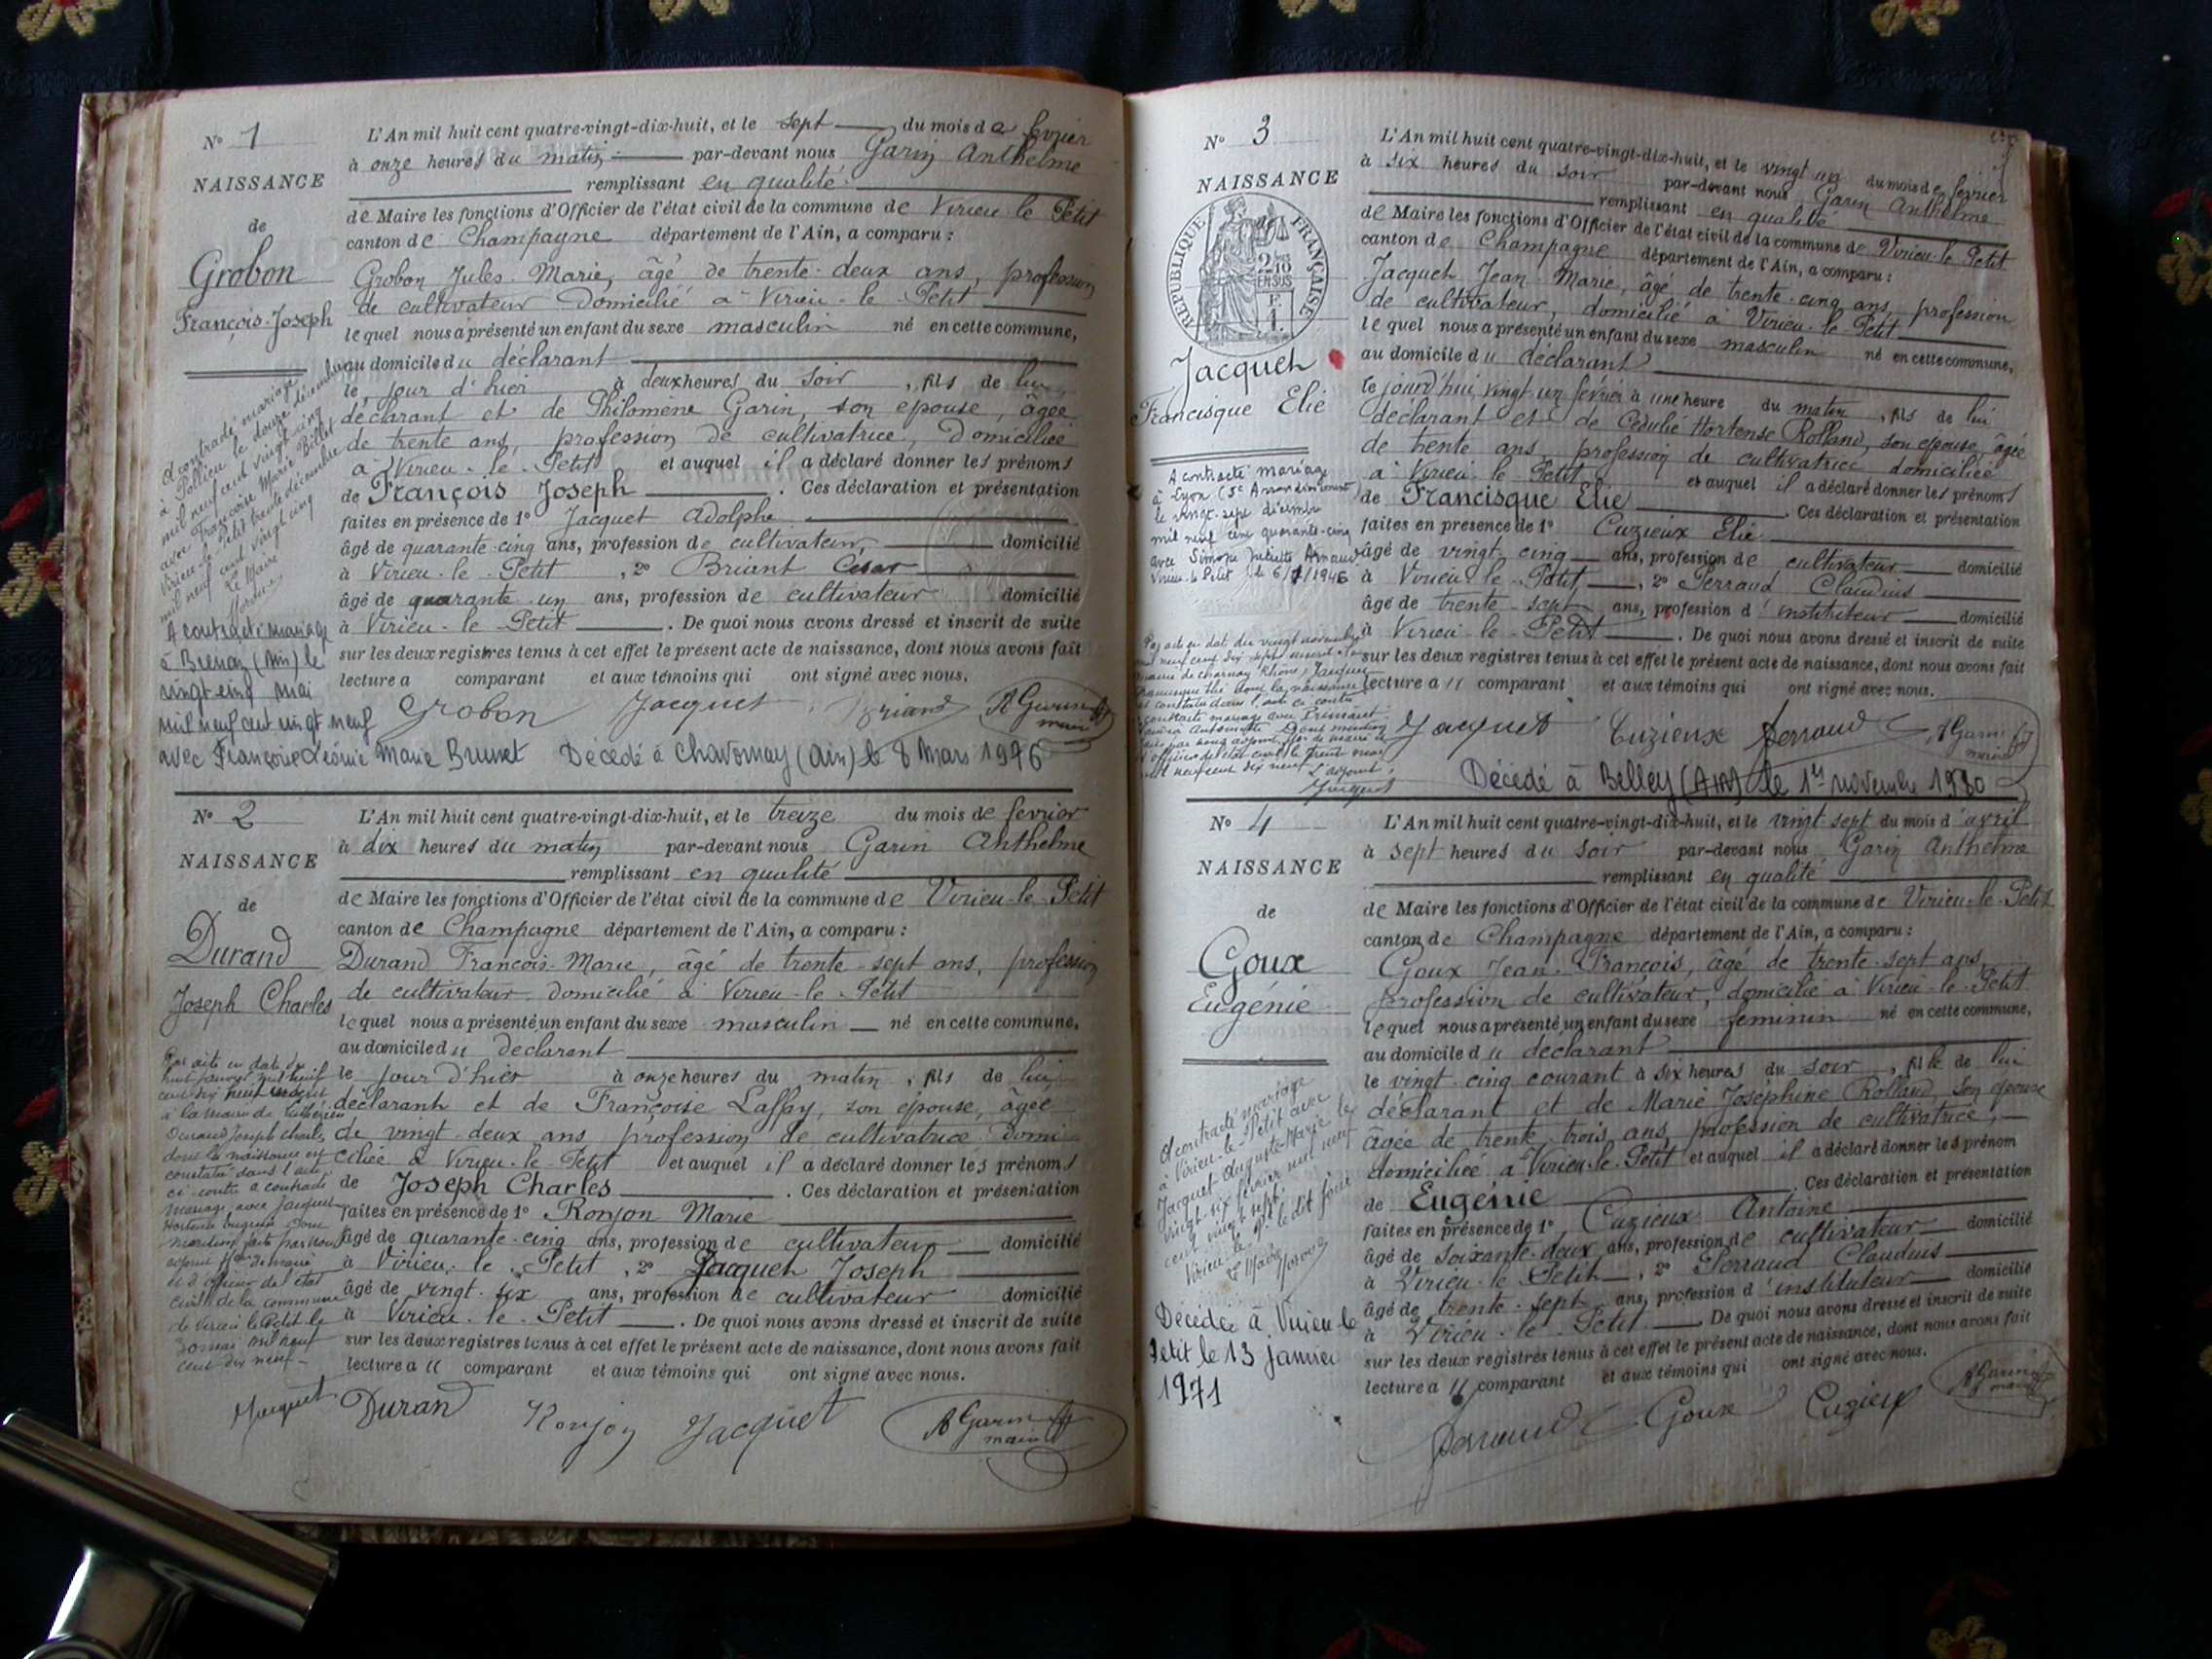 N° 1
NAISSANCE
de
Grobon
François-Joseph
A contracté mariage
à Pollieu le douze décembre
mil neuf cent vingt cinq
avec Françoise Marie Billet
Virieu-le-Petit trente décembre
mil neuf cent vingt cinq
Le Maire
A contracté mariage
à Brenaz (Ain) le
vingt cinq mai
mil neuf cent vingt neuf
avec Françoise Léonie Marie Brunet Décédé à Chavornay (Ain) le 8 Mars 1976
L'An mil huit cent quatre-vingt-dix-huit, et le sept du mois de février
à onze heures du matin par-devant nous Garin Anthelme
remplissant en qualité
de Maire les fonctions d'Officier de l'état civil de la commune de Virieu le Petit
canton de Champagne département de l'Ain, a comparu :
Grobon Jules-Marie, âgé de trente-deux ans, profession
de cultivateur domicilié à Virieu-le-Petit
lequel nous a présenté un enfant du sexe masculin né en cette commune,
au domicile du déclarant
le jour d'hier à deux heures du soir, fils de lui
déclarant et de Philomène Garin, son épouse, âgée
de trente ans, profession de cultivatrice, domiciliée
à Virieu-le-Petit et auquel il a déclaré donner les prénoms
de François Joseph. Ces déclaration et présentation
faites en présence de 1° Jacquet Adolphe
âgé de quarante-cinq ans, profession de cultivateur, domicilié
à Virieu-le-Petit, 2° Briant César
âgé de quarante-un ans, profession de cultivateur domicilié
à Virieu-le-Petit. De quoi nous avons dressé et inscrit de suite
sur les deux registres tenus à cet effet le présent acte de naissance, dont nous avons fait
lecture a comparant et aux témoins qui ont signé avec nous.
Grobon Jacquet Briand A Garin
maire
N° 2
NAISSANCE
de
Durand
Joseph Charles
Par acte en date du
huit janvier mil neuf
cent dix neuf inscrit
à la mairie de
Durand Joseph Charles
dont la naissance est
constatée dans l'acte
ci-contre a contracté
mariage avec Jacquet
Hortense Eugénie Dont
mention faite par nous
adjoint ffons de maire
et d'officier de l'état
civil de la commune
de Virieu le Petit le
mil neuf
cent dix neuf
Jacquet
L'An mil huit cent quatre-vingt-dix-huit, et le treize du mois de fevrier
à dix heures du matin par-devant nous Garin Anthelme
remplissant en qualité
de Maire les fonctions d'Officier de l'état civil de la commune de Virieu-le-Petit
canton de Champagne département de l'Ain, a comparu :
Durand François-Marie, âgé de trente-sept ans, profession
de cultivateur domicilié à Virieu-le-Petit
lequel nous a présenté un enfant du sexe masculin né en cette commune,
au domicile du declarant
le jour d'hier à onze heures du matin, fils de lui
déclarant et de Françoise Laffay, son épouse, âgée
de vingt-deux ans, profession de cultivatrice domi-
ciliée à Virieu-le-Petit et auquel il a déclaré donner les prénoms
de Joseph Charles. Ces déclaration et présentation
faites en présence de 1° Ronjon Marie
âgé de quarante-cinq ans, profession de cultivateur domicilié
à Virieu-le-Petit, 2° Jacquet Joseph
âgé de vingt-six ans, profession de cultivateur domicilié
à Virieu-le-Petit. De quoi nous avons dressé et inscrit de suite
sur les deux registres tenus à cet effet le présent acte de naissance, dont nous avons fait
lecture au comparant et aux témoins qui ont signé avec nous.
Duran Ronjon Jacquet A Garin
maire
N° 3
NAISSANCE
de
RÉPUBLIQUE FRANÇAISE
2/10 EN SUS
Jacquet
Francisque Elie
A contracté mariage
à Lyon (5e Arrondissement)
le vingt-sept décembre
mil neuf cent quarante-cinq
avec Simone Juliette Arnaud
Virieu-le-Petit, le 6/1/1946
Par acte en date du vingt novembre
mil neuf cent dix sept inscrit à la
mairie de Charnay Rhône, Jacquet
Francisque Elie dont la naissance
est constatée dans l'acte ci-contre
a contracté mariage avec
Antoinette Dont mention
faite par nous adjoint ffons de maire et
d'officier de l'état civil le trente mai
mil neuf cent dix neuf
L'adjoint,
Jacquet
L'An mil huit cent quatre-vingt-dix-huit, et le vingt un du mois de fevrier
à six heures du soir par-devant nous Garin Anthelme
remplissant en qualité
de Maire les fonctions d'Officier de l'état civil de la commune de Virieu-le-Petit
canton de Champagne département de l'Ain, a comparu :
Jacquet Jean-Marie, âgé de trente-cinq ans, profession
de cultivateur, domicilié à Virieu-le-Petit
lequel nous a présenté un enfant du sexe masculin né en cette commune,
au domicile du déclarant
le jourd'hui vingt-un février à une heure du matin, fils de lui
déclarant et de Cédulié Hortense Rolland, son épouse, âgée
de trente ans, profession de cultivatrice domiciliée
à Virieu le Petit et auquel il a déclaré donner les prénoms
de Francisque Elie. Ces déclaration et présentation
faites en présence de 1° Cuzieux Elie
âgé de vingt-cinq ans, profession de cultivateur domicilié
à Virieu-le-Petit, 2° Perraud Claudius
âgé de trente-sept ans, profession d'instituteur domicilié
à Virieu-le-Petit. De quoi nous avons dressé et inscrit de suite
sur les deux registres tenus à cet effet le présent acte de naissance, dont nous avons fait
lecture au comparant et aux témoins qui ont signé avec nous.
Jacquet Cuzieux Perraud A Garin
maire
Décédé à Belley (Ain) le 1er novembre 1980
N° 4
NAISSANCE
de
Goux
Eugénie
A contracté mariage
à Virieu-le-Petit avec
Jacquet Auguste Marie le
vingt-six février mil neuf
cent vingt sept.
Virieu-le-Pt. le dit jour
Le Maire
Décédée à Virieu le
Petit le 13 janvier
1971
L'An mil huit cent quatre-vingt-dix-huit, et le vingt-sept du mois d'avril
à sept heures du soir par-devant nous Garin Anthelme
remplissant en qualité
de Maire les fonctions d'Officier de l'état civil de la commune de Virieu-le-Petit
canton de Champagne département de l'Ain, a comparu :
Goux Jean-François, âgé de trente-sept ans,
profession de cultivateur, domicilié à Virieu-le-Petit
lequel nous a présenté un enfant du sexe feminin né en cette commune,
au domicile du declarant
le vingt-cinq courant à six heures du soir, fille de lui
déclarant et de Marie Joséphine Rolland, son épouse
âgée de trente trois ans, profession de cultivatrice,
domiciliée à Virieu-le-Petit et auquel il a déclaré donner les prénom
de Eugénie. Ces déclaration et présentation
faites en présence de 1° Cuzieux Antoine
âgé de soixante-deux ans, profession de cultivateur domicilié
à Virieu-le-Petit, 2° Perraud Claudius
âgé de trente-sept ans, profession d'instituteur domicilié
à Virieu-le-Petit. De quoi nous avons dressé et inscrit de suite
sur les deux registres tenus à cet effet le présent acte de naissance, dont nous avons fait
lecture au comparant et aux témoins qui ont signé avec nous.
Perraud Goux Cuzieux A Garin
maire